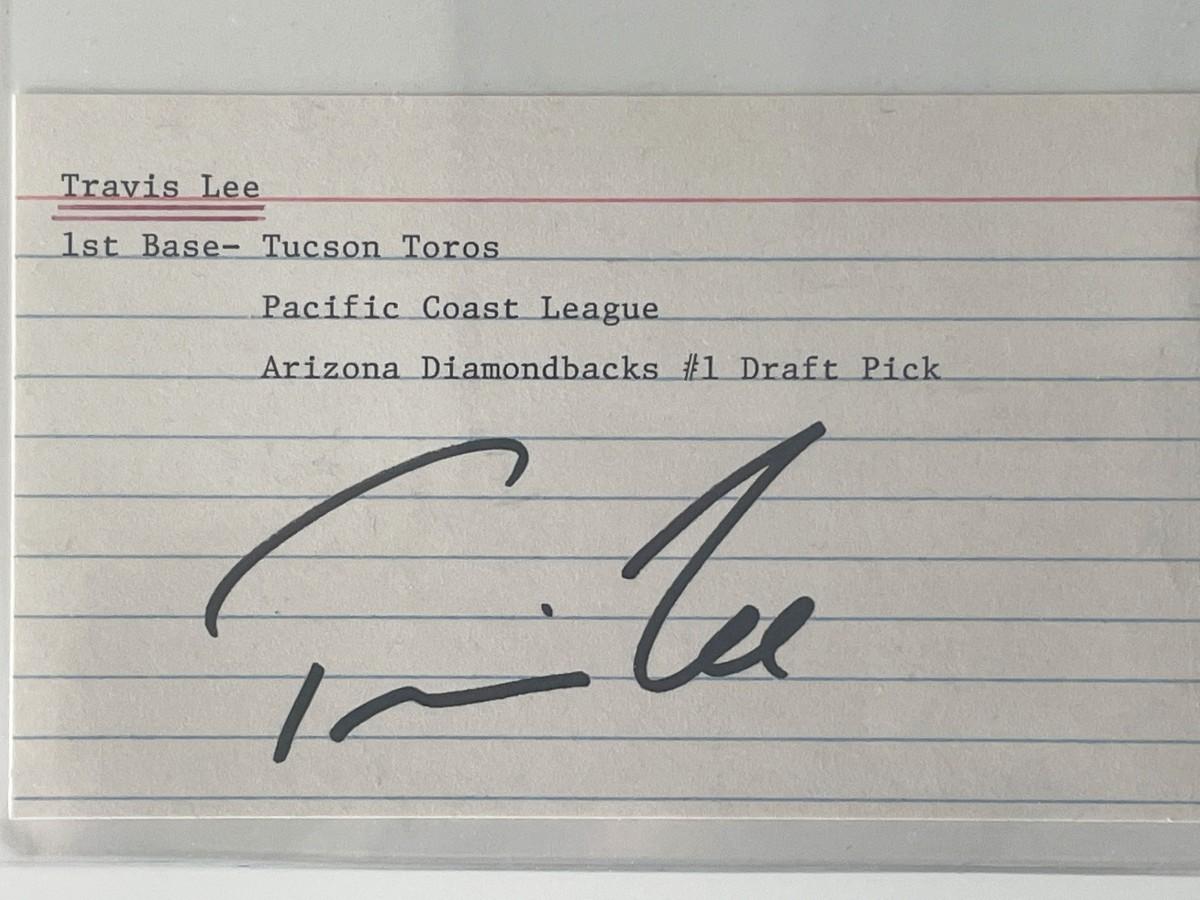 Travis Lee
1st Base- Tucson Toros
Pacific Coast League
Arizona Diamondbacks #1 Draft Pick
Travis Lee